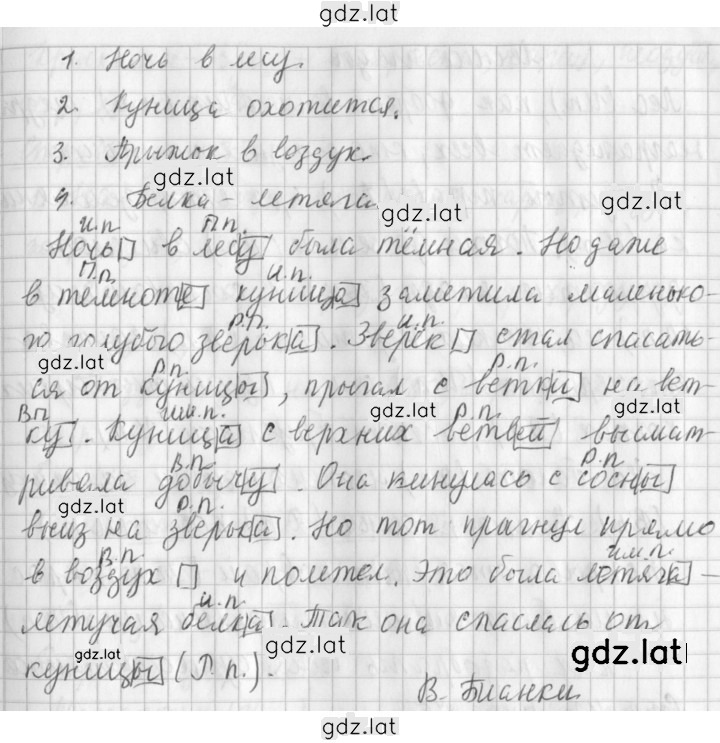 gdz.lat
1. Ночь в лесу.
2. Куница охотится.
3. Прыжок в воздух.
gdz.lat
4. Белка - летяга.
gdz.lat gdz.lat
И.п. П.п.
Ночь в лесу была тёмная. Но даже
П.п. И.п.
в темноте куница заметила маленько-
Р.п. И.п.
го голубого зверька. Зверёк стал спасать-
gdz.lat Р.п. Р.п.
ся от куницы, прыгал с ветки на вет-
В.п. Им.п. gdz.lat Р.п. gdz.lat
ку. Куница с верхних ветвей высмат-
В.п. Р.п.
ривала добычу. Она кинулась с сосны
gdz.lat Р.п. gdz.lat gdz.lat
вниз на зверька. Но тот прыгнул прямо
В.п. им.п.
в воздух и полетел. Это была летяга -
И.п.
летучая белка. Так она спаслась от
gdz.lat gdz.lat gdz.lat
куницы (Р.п.).
В. Бианки
gdz.lat